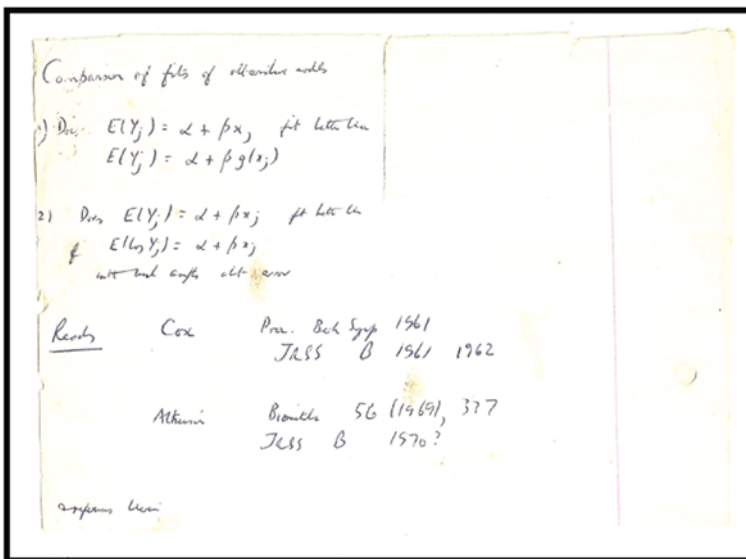 Comparison of fits of alternative models
1) Does E(Yj) = α + βxj fit better than
E(Yj) = α + β g(xj)
2) Does E(Yj) = α + βxj fit better than
E(log Yj) = α + βxj
with usual
error
Reads Cox Proc. Berk Symp 1961
JRSS B 1961 1962
Atkinson Biometrika 56 (1969), 337
JRSS B 1970?